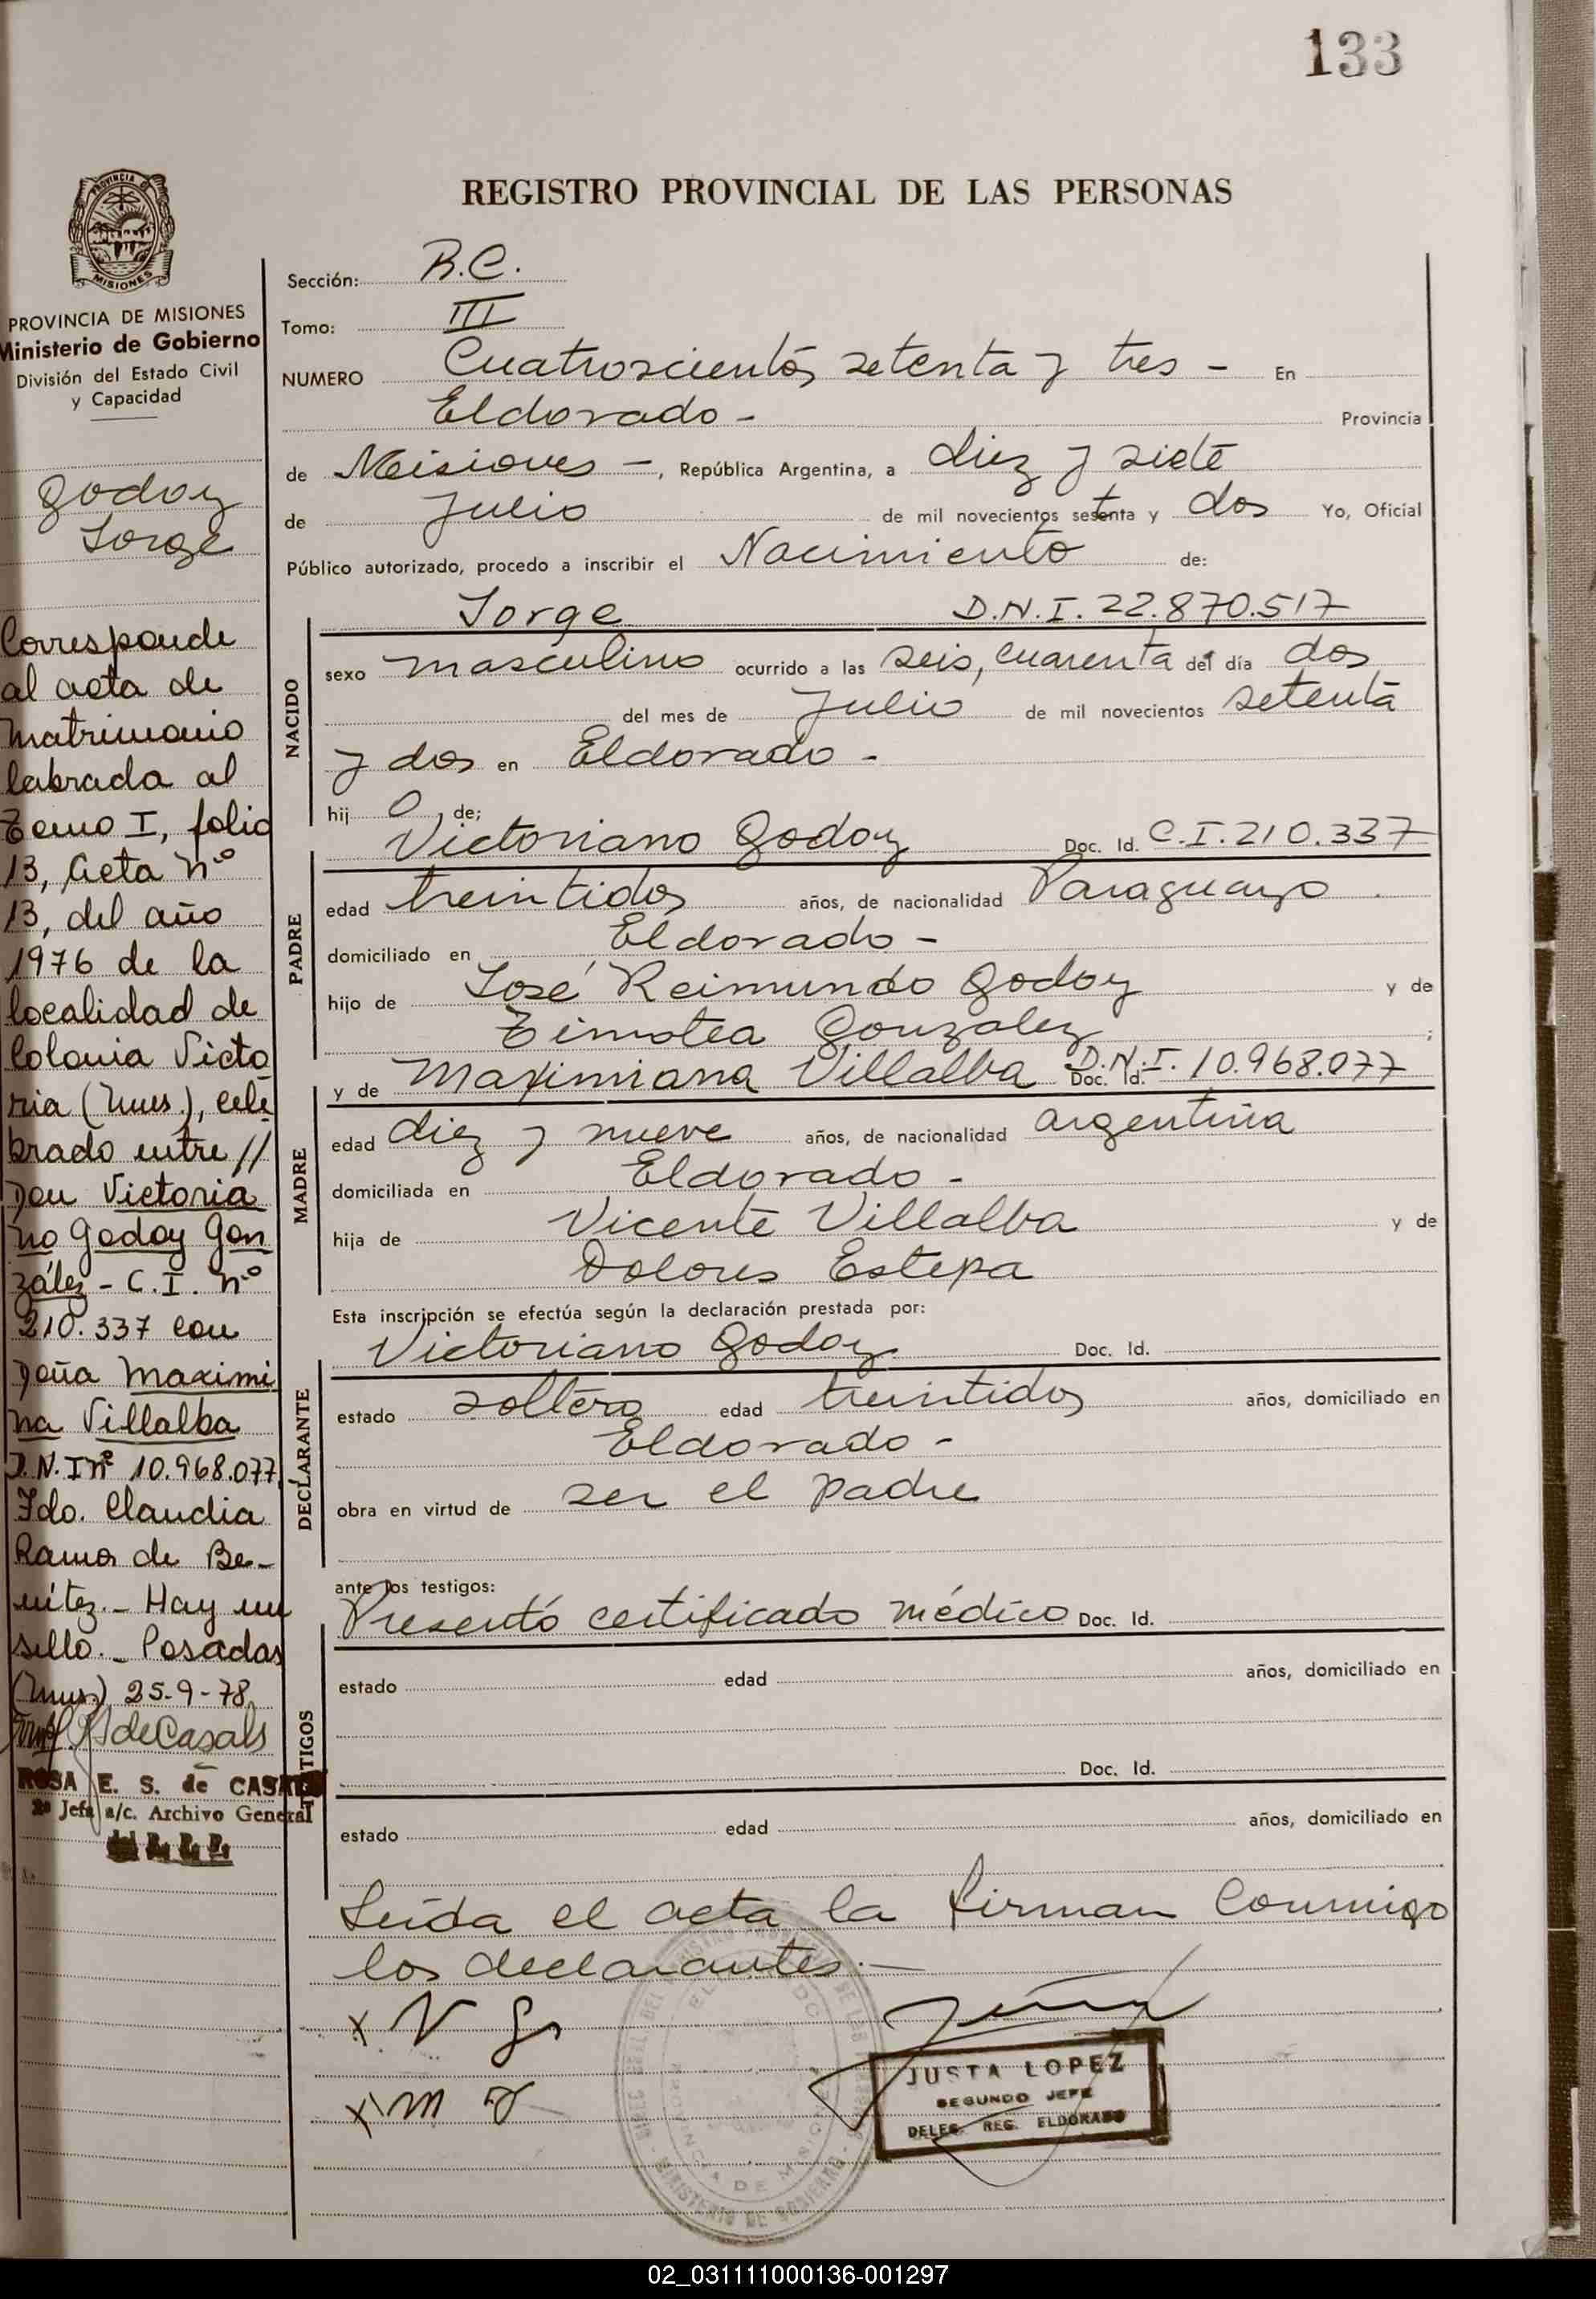 133
REGISTRO PROVINCIAL DE LAS PERSONAS
PROVINCIA DE
MISIONES
PROVINCIA DE MISIONES
Ministerio de Gobierno
División del Estado Civil
y Capacidad
Godoy
Jorge
Corresponde
al acta de
matrimonio
labrada al
Tomo I, folio
13, Acta nº
13, del año
1976 de la
localidad de
Colonia Victo
ria (Mnes.), cele
brado entre //
Don Victoria
no Godoy Gon
zález - C.I. nº
210.337 con
Doña Maximi
na Villalba
D.N.I nº 10.968.077
Fdo. Claudia
Ramos de Be-
nítez._ Hay un
sello._ Posadas
(Mnes.) 25-9-78
de Casals
ROSA E. S. de CASALS
2ª Jefa a/c. Archivo General
Sección: R.C.
Tomo: III
NUMERO Cuatroscientos setenta y tres - En
Eldorado - Provincia
de Misiones -, República Argentina, a diez y siete
de Julio de mil novecientos setenta y dos Yo, Oficial
Público autorizado, procedo a inscribir el Nacimiento de:
Jorge D.N.I. 22.870.517
NACIDO
sexo masculino ocurrido a las seis, cuarenta del día dos
del mes de Julio de mil novecientos setenta
y dos en Eldorado -
hij o de;
Victoriano Godoy Doc. Id. C.I. 210.337
PADRE
edad treintidos años, de nacionalidad Paraguayo
domiciliado en Eldorado -
hijo de José Reimundo Godoy y de
Timotea Gonzalez ;
y de Maximiana Villalba Doc. Id. D.N.I. 10.968.077
MADRE
edad diez y nueve años, de nacionalidad argentina
domiciliada en Eldorado -
hija de Vicente Villalba y de
Dolores Estepa
Esta inscripción se efectúa según la declaración prestada por:
Victoriano Godoy Doc. Id.
DECLARANTE
estado soltero edad treintidos años, domiciliado en
Eldorado -
obra en virtud de ser el padre
ante los testigos:
Presentó certificado médico Doc. Id.
TESTIGOS
estado edad años, domiciliado en
Doc. Id.
estado edad años, domiciliado en
Leída el acta la firman conmigo
los declarantes.-
x V G
x M V
JUSTA LOPEZ
SEGUNDO JEFE
DELEG. REG. ELDORADO
PROVINCIA DE MISIONES
MINISTERIO DE GOBIERNO
02_031111000136-001297